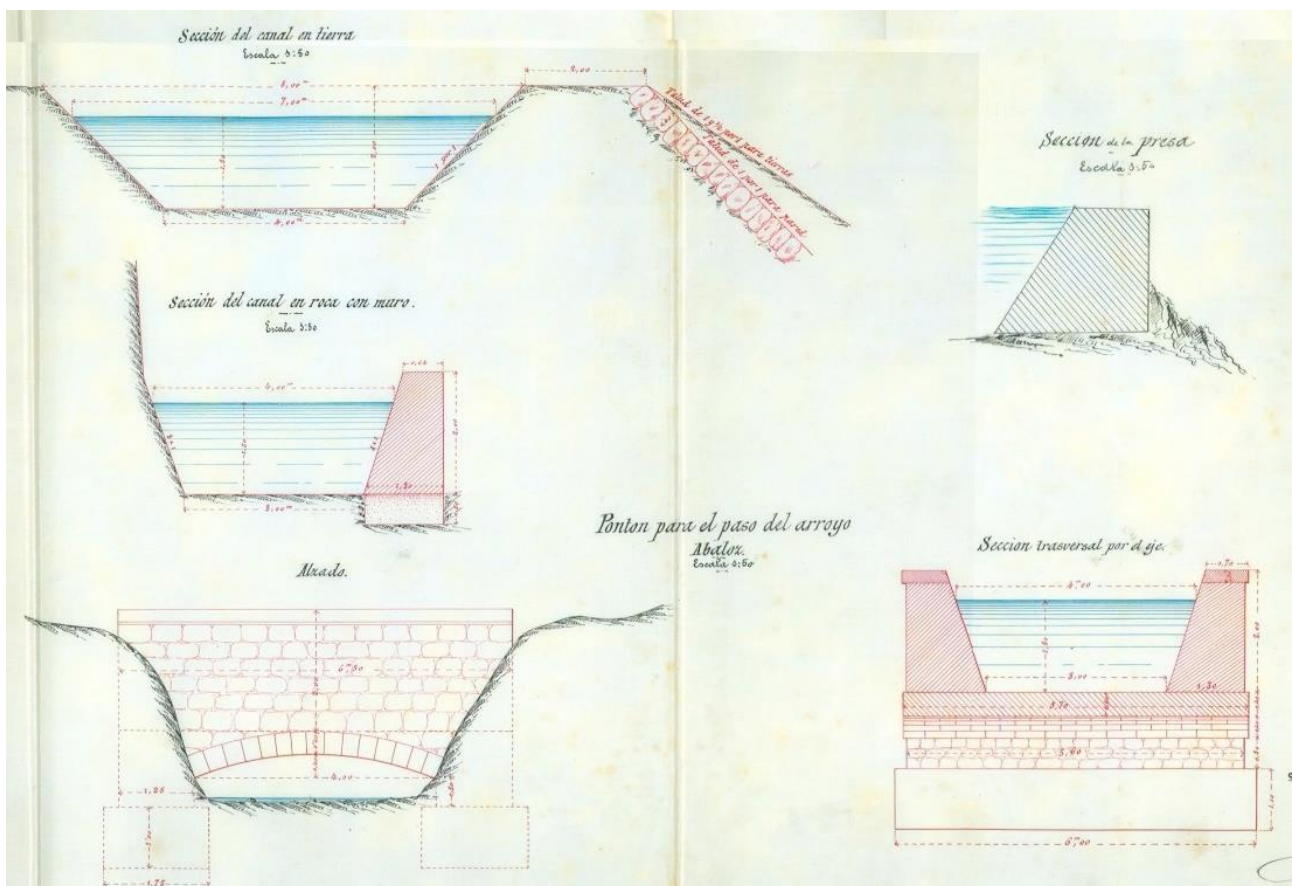 Sección del canal en tierra
Escala 1:50
8,00ᵐ
7,00ᵐ
2,00
1,50
2,00
1 por 1
4,00ᵐ
Talud de 1 y ½ por 1 para tierras
Talud de 1 por 1 para pared
Seccion de la presa
Escala 1:50
Sección del canal en roca con muro.
Escala 1:50
4,00ᵐ
1,50
2,00
1,30
3,00ᵐ
Ponton para el paso del arroyo
Abaloz.
Escala 1:50
Alzado.
6ᵐ50
2,00
4,00
1,25
1,00
1,75
Seccion trasversal por el eje.
0,70
4ᵐ00
1,50
2,00
3,00
1,30
5,70
5,60
1,00
6ᵐ00